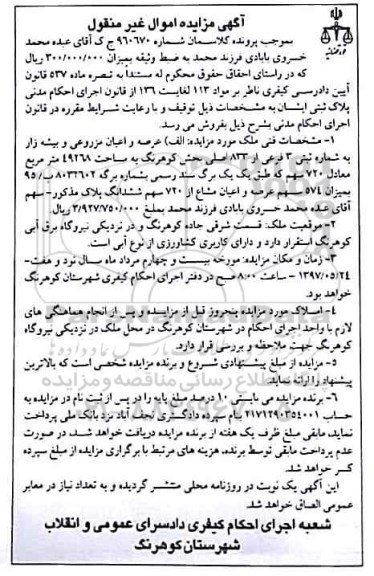 آگهی مزایده اموال غیر منقول
قوه قضائیه
بموجب پرونده کلاسمان شماره ۹۶۰۶۷۰ ج ک آقای عبده محمد
خسروی بابادی فرزند محمد به ضبط وثیقه بمیزان ۳۰۰/۰۰۰/۰۰۰ ریال
که در راستای احقاق حقوق محکوم له مستندا به تبصره ماده ۵۳۷ قانون
آیین دادرسی کیفری ناظر بر مواد ۱۱۳ لغایت ۱۳۶ از قانون اجرای احکام مدنی
پلاک ثبتی ایشان به مشخصات ذیل توقیف و با رعایت شرایط مقرره در قانون
اجرای احکام مدنی بشرح ذیل بفروش می رسد.
۱- مشخصات فنی ملک مورد مزایده: الف) عرصه و اعیان مزروعی و بیشه زار
به شماره ثبتی ۳ فرعی از ۸۳۲ اصلی بخش کوهرنگ به مساحت ۴۹۲۶۸ متر مربع
معادل ۷۲۰ سهم که طبق یک یک برگ سند رسمی بشماره برگه ۸۰۳۲۶۰۲ ب/۹۵
بمیزان ۵۷۴ سهم عرصه و اعیان مشاع از ۷۲۰ سهم ششدانگ پلاک مذکور- سهم
آقای عبده محمد خسروی بابادی فرزند محمد بمبلغ ۳/۹۲۷/۷۵۰/۰۰۰ ریال.
۲- موقعیت ملک: قسمت شرقی جاده کوهرنگ و در نزدیکی نیروگاه برق آبی
کوهرنگ استقرار دارد و دارای کاربری کشاورزی از نوع آبی است.
۳- زمان و مکان مزایده: مورخه بیست و چهارم مرداد ماه سال نود و هفت-
۱۳۹۷/۰۵/۲۴ - ساعت ۸:۰۰ صبح در دفتر اجرای احکام کیفری شهرستان کوهرنگ
خواهد بود.
۴- املاک مورد مزایده پنجروز قبل از مزایده و پس از انجام هماهنگی های
لازم با واحد اجرای احکام در شهرستان کوهرنگ در محل ملک در نزدیکی نیروگاه
کوهرنگ جهت ملاحظه و بررسی قرار دارد.
۵- مزایده از مبلغ پیشنهادی شروع و برنده مزایده شخصی است که بالاترین
پیشنهاد را ارائه نماید.
۶- برنده مزایده می بایستی ۱۰ درصد مبلغ پایه را در پس از ثبت نام در مزایده به
حساب ۲۱۷۱۲۹۰۳۵۴۰۰۱ بنام سپرده دادگستری نجف آباد نزد بانک ملی پرداخت
نماید، مابقی مبلغ ظرف یک هفته از برنده مزایده دریافت خواهد شد، در صورت
عدم پرداخت مابقی توسط برنده، هزینه های مرتبط با برگزاری مزایده از مبلغ سپرده
کسر خواهد شد.
این آگهی یک نوبت در روزنامه محلی منتشر گردیده و به تعداد نیاز در معابر
عمومی الصاق خواهد شد.
شعبه اجرای احکام کیفری دادسرای عمومی و انقلاب
شهرستان کوهرنگ